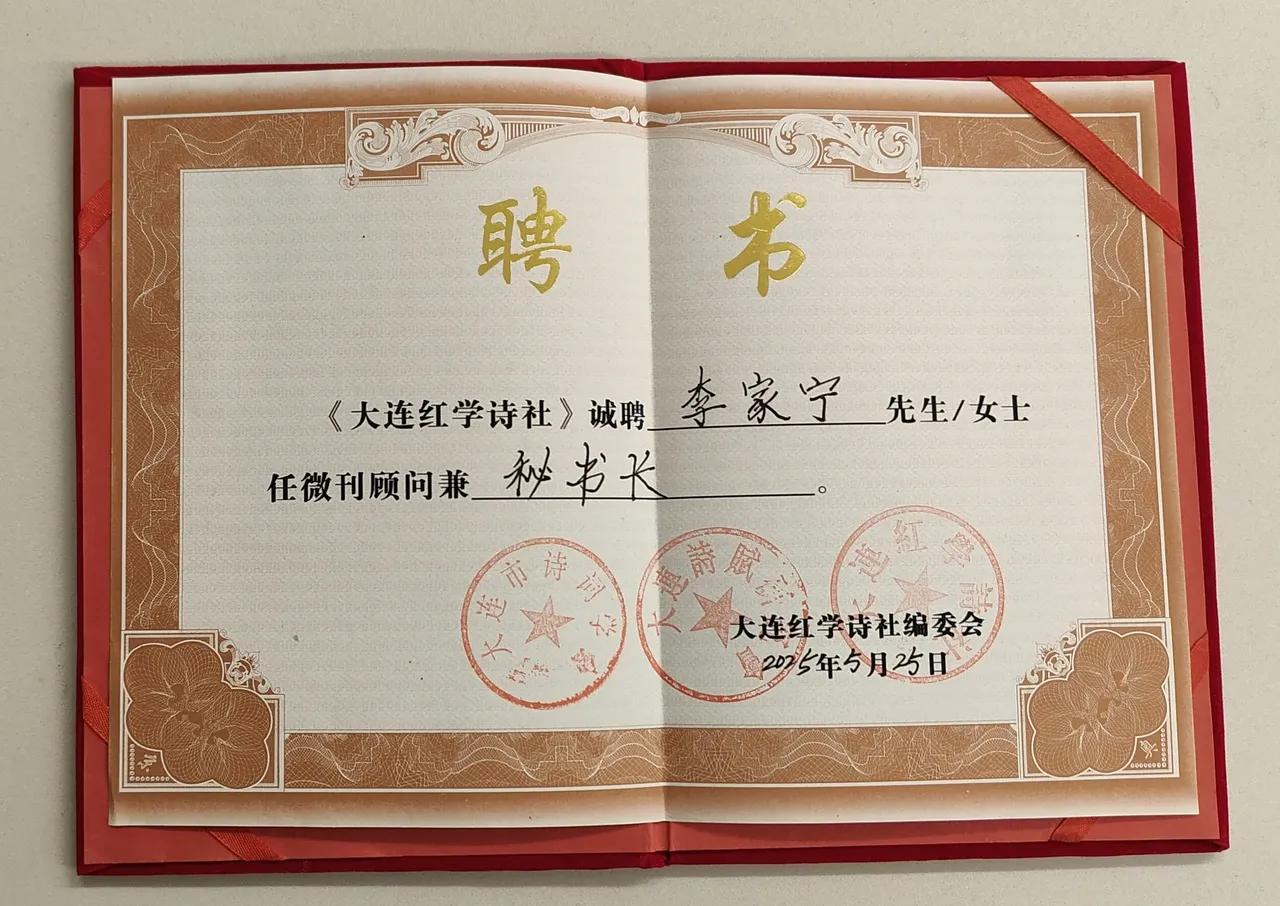 聘 书
《大连红学诗社》诚聘 李家宁 先生/女士
任微刊顾问兼 秘书长 。
大连市诗词学会
大连红学诗社编委会
2025年5月25日